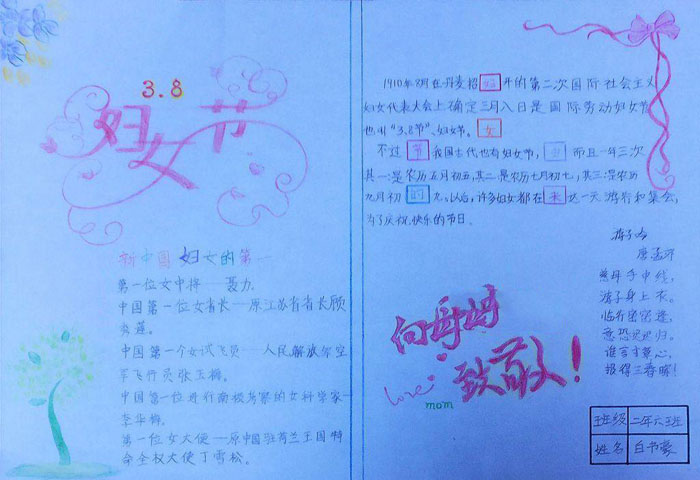 3.8
妇女节
新中国妇女的第一
第一位女中将——聂力
中国第一位女省长—原江苏省省长顾
秀莲。
中国第一个女试飞员——人民解放军空
军飞行员张玉梅。
中国第一位进行南极考察的女科学家—
李华梅。
第一位女大使—原中国驻荷兰王国特
命全权大使丁雪松。
1910年8月在丹麦招 开的第二次国际社会主义
妇女代表大会上确定三月八日是国际劳动妇女节
也叫“3.8节”、妇女节。女
不过节我国古代也有妇女节, 而且一年三次
其一:是农历五月初五,其二:是农历七月初七,其三:是农历
九月初 九。以后,许多妇女都在来这一天游行和集会,
为了庆祝快乐的节日。
向母亲
致敬!
love
mom
游子吟
唐孟郊
慈母手中线,
游子身上衣。
临行密密逢,
意恐迟迟归。
谁言寸草心,
报得三春晖!
班级 二年六班
姓名 白书豪